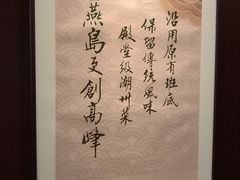 沿用原有班底
保留傳統風味
殿堂級潮州菜
燕島更創高峰